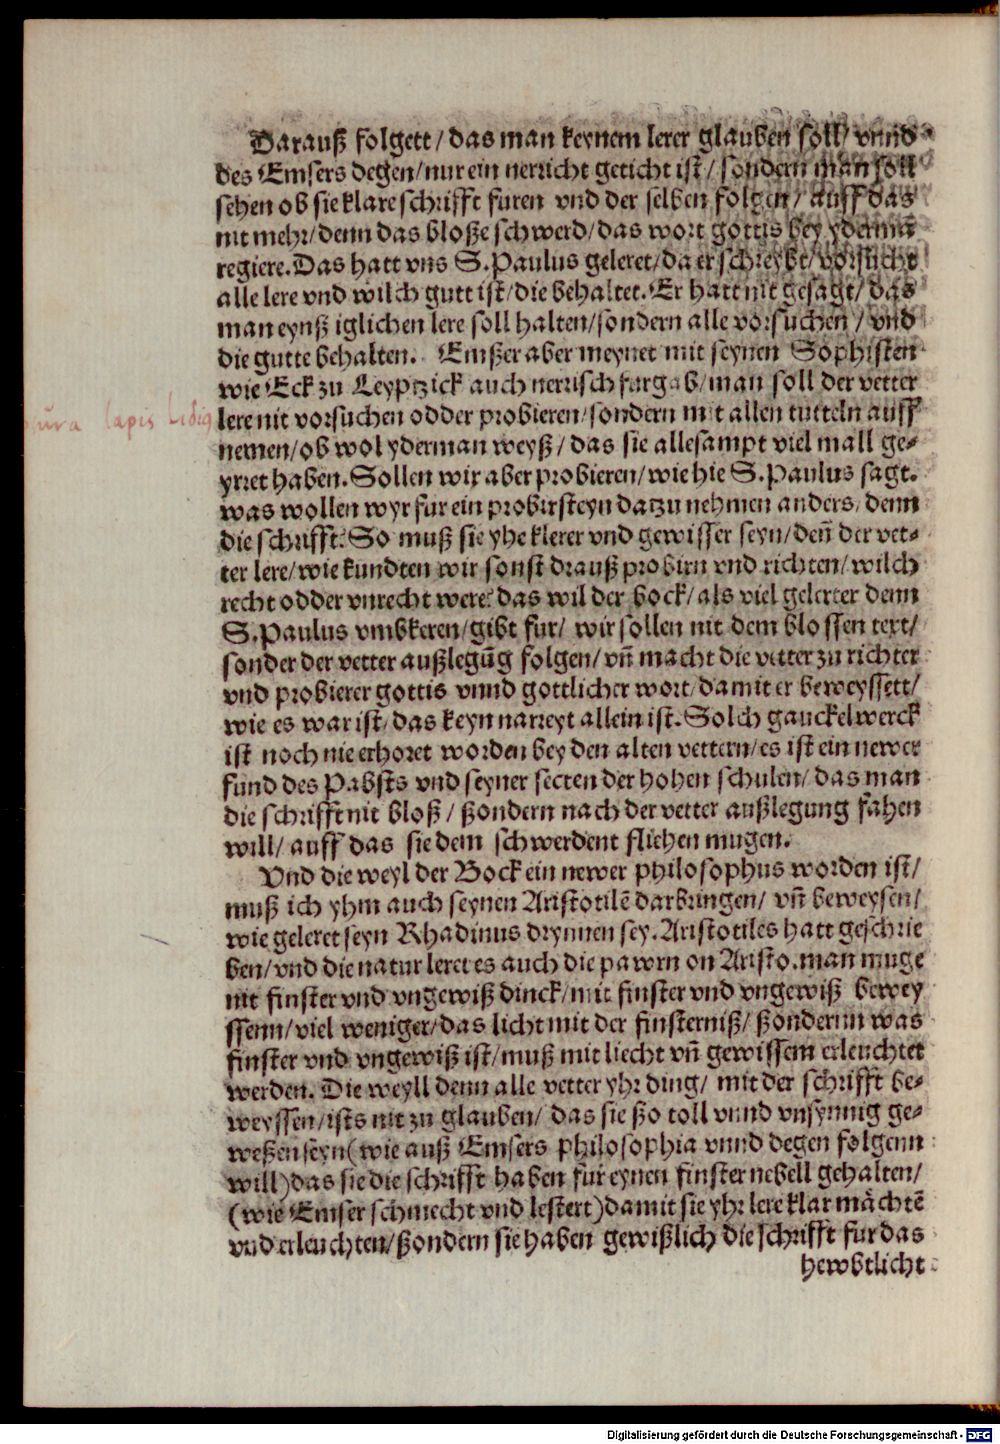 Darauß folgett / das man keynem lerer glauben soll / vnnd
des Emsers degen / nur ein nerricht geticht ist / sondern man soll
sehen ob sie klare schrifft furen vnd der selben folgen / auff das
nit mehr / denn das bloße schwerd / das wort gottis bey ydermā
regiere. Das hatt vns S. Paulus geleret / da er schreybt / vorsucht
alle lere vnd wilch gutt ist / die behaltet. Er hatt nit gesagt / das
man eynß iglichen lere soll halten / sondern alle vorsuchen / vnd
die gutte behalten. Emßer aber meynet mit seynen Sophisten
wie Eck zu Leyptzick auch nerrisch furgab / man soll der vetter
lapis Lidius
lere nit vorsuchen odder probieren / sondern mit allen tutteln auff
nemen / ob wol yderman weyß / das sie allesampt viel mall ge-
yrret haben. Sollen wir aber probieren / wie hie S. Paulus sagt.
was wollen wyr fur ein probirsteyn datzu nehmen anders / denn
die schrifft: So muß sie yhe klerer vnd gewisser seyn / deñ der vet-
ter lere / wie kundten wir sonst drauß probirn vnd richten / wilch
recht odder vnrecht were: das wil der bock / als viel gelerter denn
S. Paulus vmbkeren / gibt fur / wir sollen nit dem blossen text /
sonder der vetter außlegūg folgen / vñ macht die vetter zu richter
vnd probierer gottis vnnd gottlicher wort / damit er beweyssett /
wie es war ist / das keyn narreyt allein ist. Solch gauckelwerck
ist noch nie erhoret worden bey den alten vettern / es ist ein newer
fund des Pabsts vnd seyner secten der hohen schulen / das man
die schrifft nit bloß / ßondern nach der vetter außlegung fahen
will / auff das sie dem schwerdent fliehen mugen.
Vnd die weyl der Bock ein newer philosophus worden ist /
muß ich yhm auch seynen Aristotilē darbringen / vñ beweysen /
wie geleret seyn Rhadinus drynnen sey. Aristotiles hatt geschrie
ben / vnd die natur leret es auch die pawrn on Aristo. man muge
nit finster vnd vngewiß dinck / mit finster vnd vngewiß bewey
ssenn / viel weniger / das licht mit der finsterniß / ßonderun was
finster vnd vngewiß ist / muß mit liecht vñ gewissem erleuchtet
werden. Die weyll denn alle vetter yhr ding / mit der schrifft be-
weyssen / ists nit zu glauben / das sie ßo toll vnnd vnsynnig ge-
weßen seyn (wie auß Emsers philosophia vnnd degen folgenn
will) das sie die schrifft haben fur eynen finster nebell gehalten /
(wie Emser schmecht vnd lestert) damit sie yhr lere klar mächtē
vnd erleuchten / ßondern sie haben gewißlich die schrifft fur das
hewbtlicht
Digitalisierung gefördert durch die Deutsche Forschungsgemeinschaft - DFG